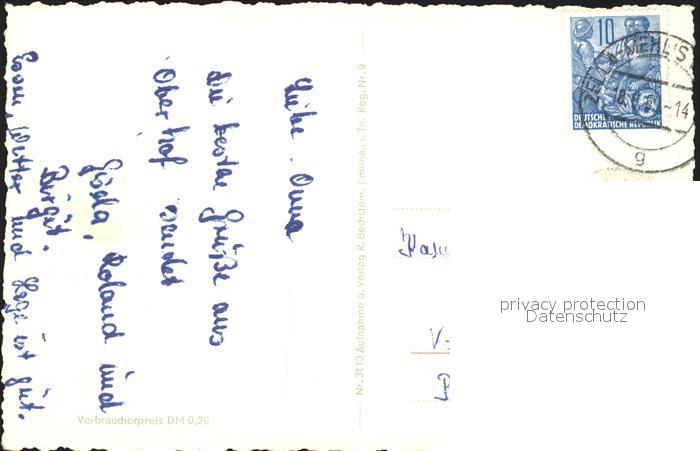 Liebe Oma
die besten Grüße aus
Oberhof sendet
Gisela, Roland und
Birgit.
Essen, Wetter und Lage ist gut.
Verbraucherpreis DM 0,20
Nr. 3113 Aufnahme u. Verlag R. Bechstein, Jlmenau i. Th. Reg. Nr. 9
10
DEUTSCHE
DEMOKRATISCHE REPUBLIK
ZELLA-MEHLIS
-14
g
privacy protection
Datenschutz